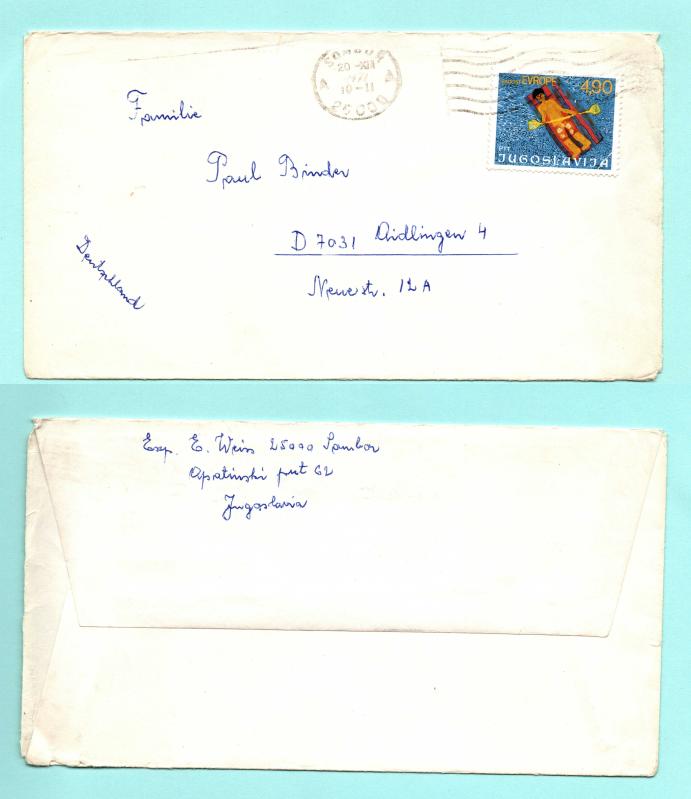 SOMBOR
20-XII
1977
10-11
25000
RADOST EVROPE 4,90
PTT
JUGOSLAVIJA
Familie
Paul Binder
D 7031 Aidlingen 4
Neuestr. 12A
Deutschland
Exp. E. Weiss 25000 Sombor
Apatinski put 62
Jugoslavia